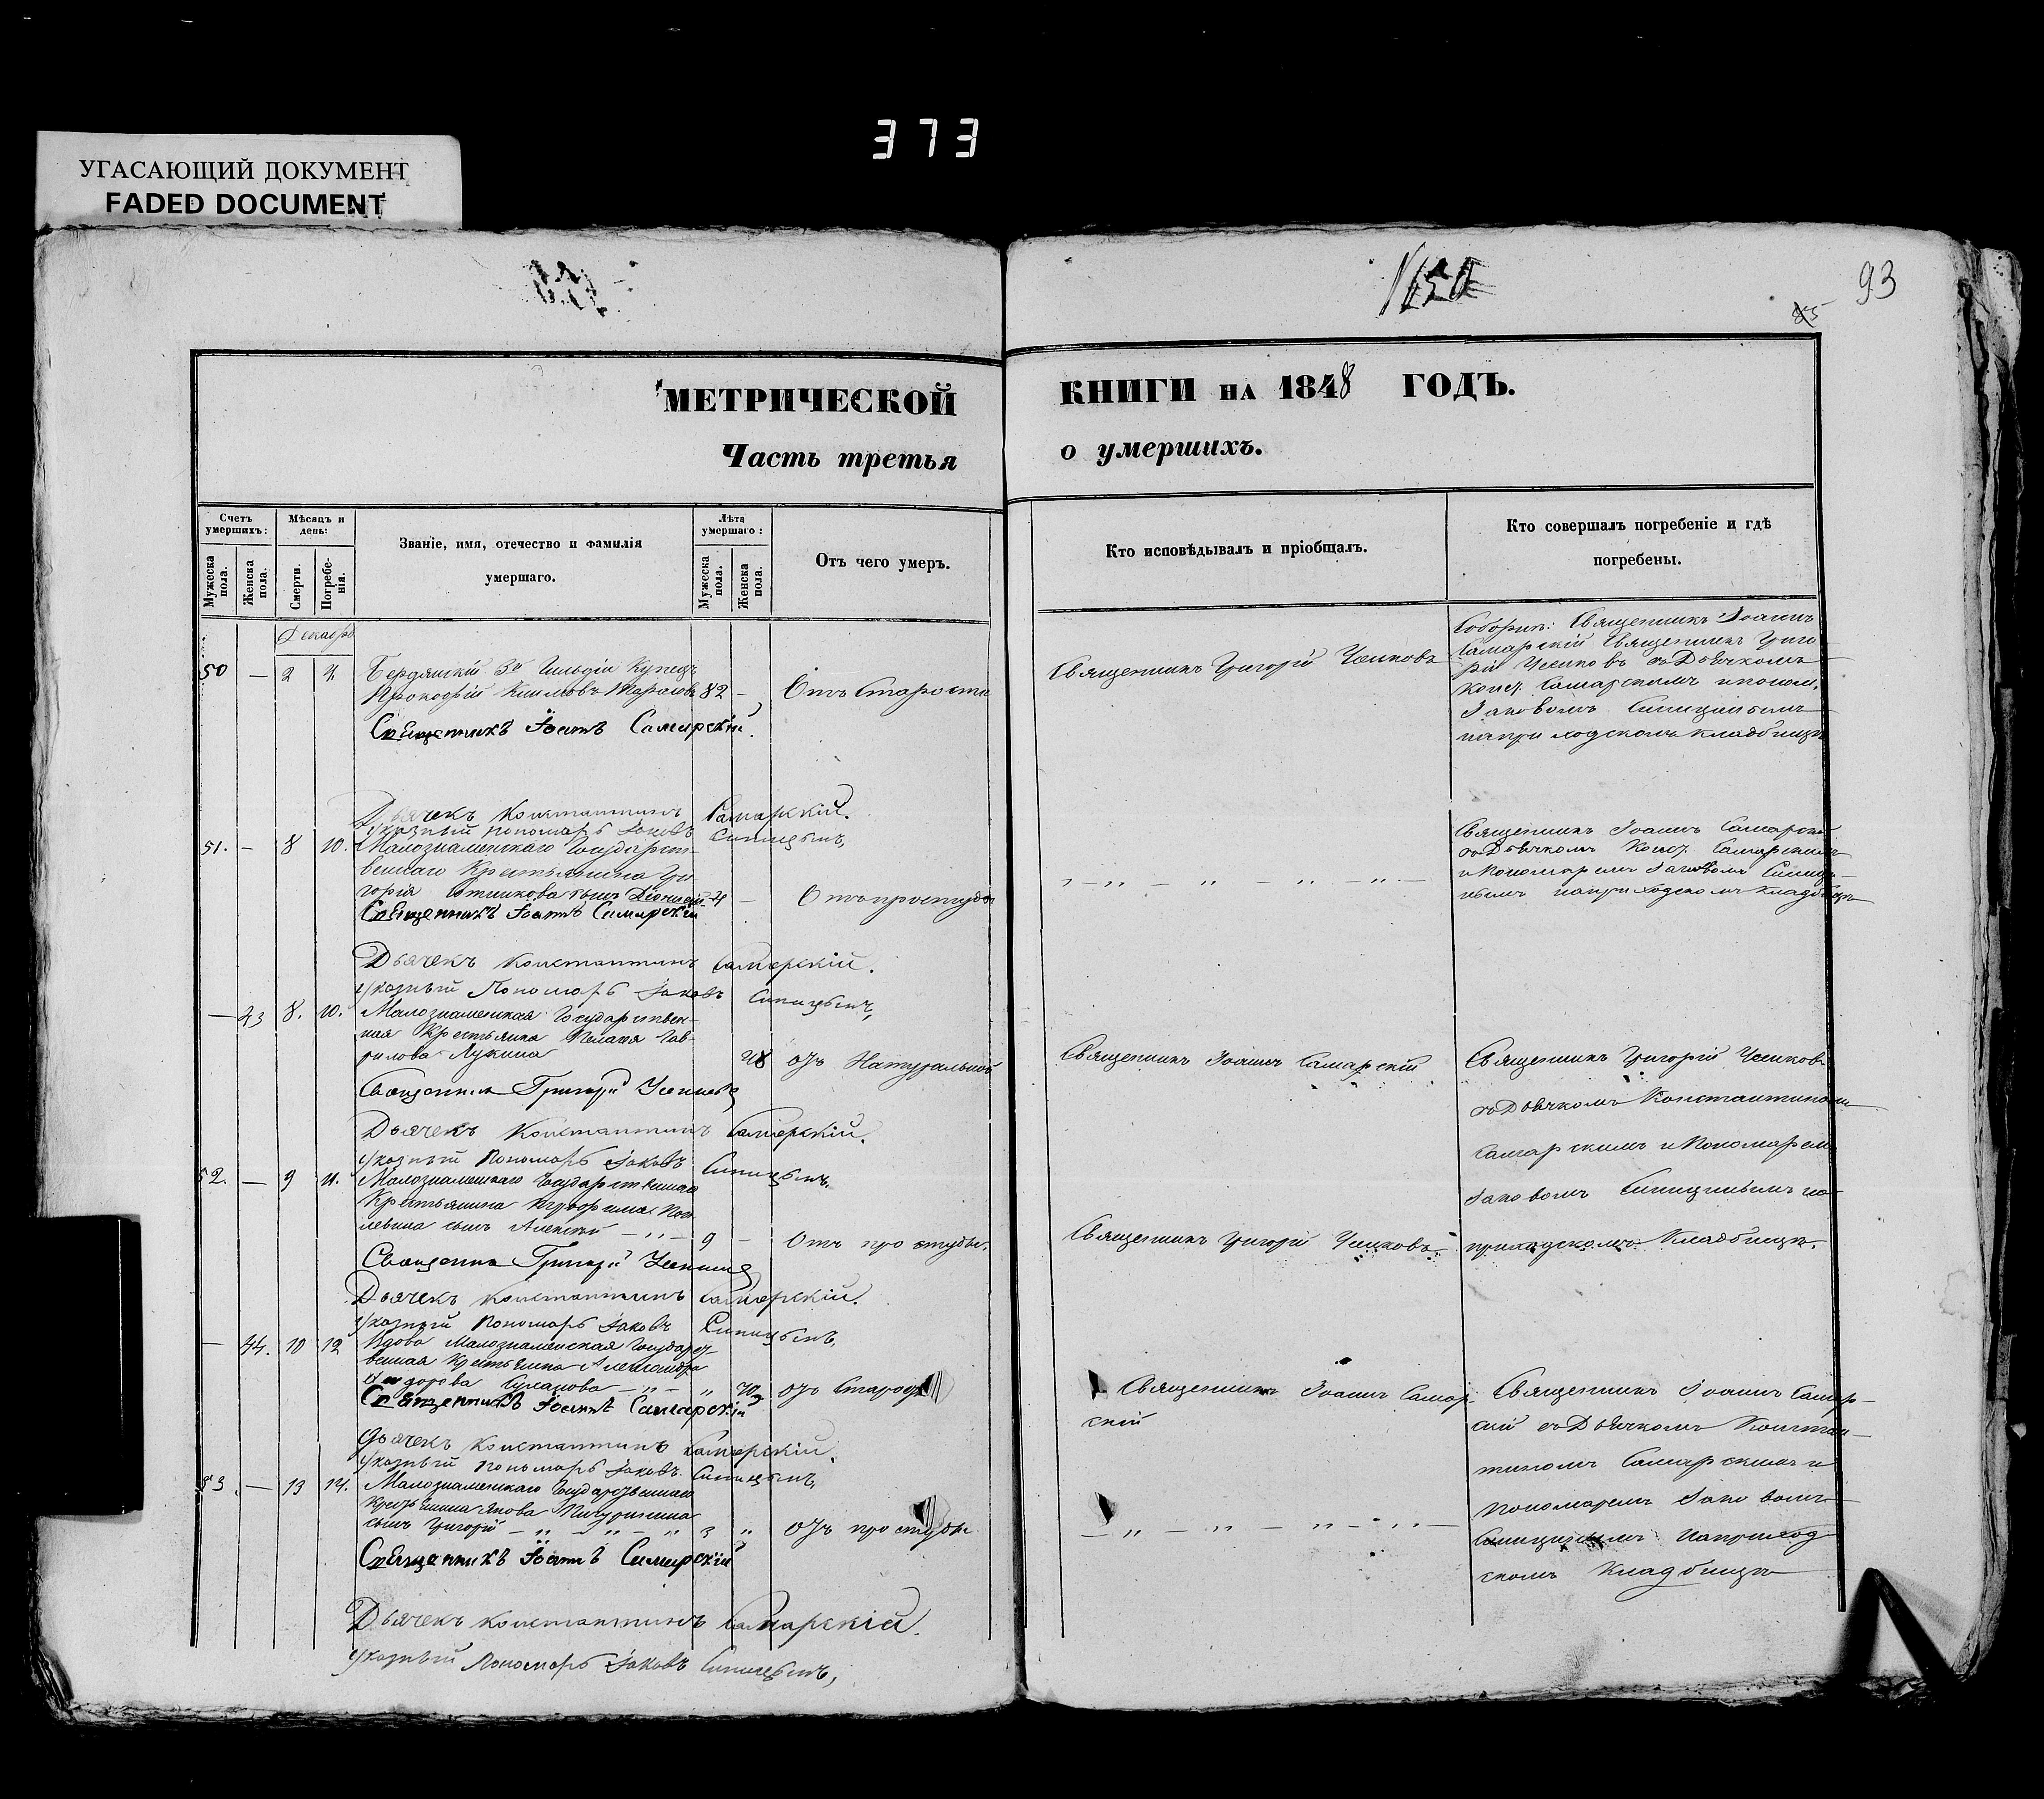 373
УГАСАЮЩИЙ ДОКУМЕНТ
FADED DOCUMENT
93
МЕТРИЧЕСКОЙ
Часть третья
Счетъ умершихъ:
Мужеска пола.
Женска пола.
Мѣсяцъ и день:
Смерти.
Погребенія.
Званіе, имя, отечество и фамилія
умершаго.
Лѣта умершаго:
Мужеска пола.
Женска пола.
Отъ чего умеръ.
Декабрь
50 — 2 4 Бердянскій 3й Гильдіи Купецъ
Прокофій 82 — Отъ Старости
Священникъ Іоаннъ Самарскій
Дьячекъ Константинъ Самарскій.
Указный Пономарь Іаковъ Синицынъ,
51. — 8 10. Малознаменскаго Государст-
веннаго Крестьянина Гри-
горія сынъ 4 — Отъ простуды
Священникъ Іоаннъ Самарскій
Дьячекъ Константинъ Самарскій.
Указный Пономарь Іаковъ Синицынъ,
— 43 8. 10. Малознаменская Государствен-
ная Крестьянка Пелагія Гав-
рилова Лукина 48 отъ Натуральной
Священникъ Григорій
Дьячекъ Константинъ Самарскій.
Указный Пономарь Іаковъ Синицынъ,
52. — 9 11. Малознаменскаго Государственнаго
Крестьянина
сынъ Алексѣй — „ — 9 — Отъ простуды.
Священникъ Григорій
Дьячекъ Константинъ Самарскій.
Указный Пономарь Іаковъ Синицынъ,
— 44. 10 12 Вдова Малознаменская Государст-
венная Крестьянка Александра
— „ — „ 70 отъ Старости
Священникъ Іоаннъ Самарскій
Дьячекъ Константинъ Самарскій.
Указный Пономарь Іаковъ Синицынъ,
53. — 13 14. Малознаменскаго Государственнаго
Крестьянина Якова
сынъ Григорій — „ — „ — „ 3 „ отъ простуды
Священникъ Іоаннъ Самарскій
Дьячекъ Константинъ Самарскій.
Указный Пономарь Іаковъ Синицынъ,
КНИГИ НА 1848 ГОДЪ.
о умершихъ.
Кто исповѣдывалъ и пріобщалъ.
Кто совершалъ погребеніе и гдѣ
погребены.
Священникъ Григорій
Священникъ Іоаннъ
Самарскій Священникъ Григо
рій съ Дьячкомъ
Конст. Самарскимъ и поном.
Іаковомъ Синицинымъ
на приходскомъ кладбищѣ
— „ — „ — „ — „ —
Священникъ Іоаннъ Самарскій
съ Дьячкомъ Конст. Самарскимъ
и Пономаремъ Іаковомъ Синици-
нымъ на приходскомъ кладбищѣ
Священникъ Іоаннъ Самарскій
Священникъ Григорій
съ Дьячкомъ Константиномъ
Самарскимъ и Пономаремъ
Іаковомъ Синицинымъ на
приходскомъ Кладбищѣ.
Священникъ Григорій
Священникъ Іоаннъ Самар-
скій
Священникъ Іоаннъ Самар-
скій съ Дьячкомъ Констан-
тиномъ Самарскимъ и
Пономаремъ Іаковомъ
Синицинымъ на приход
скомъ Кладбищѣ
— „ — „ — „ — „ —